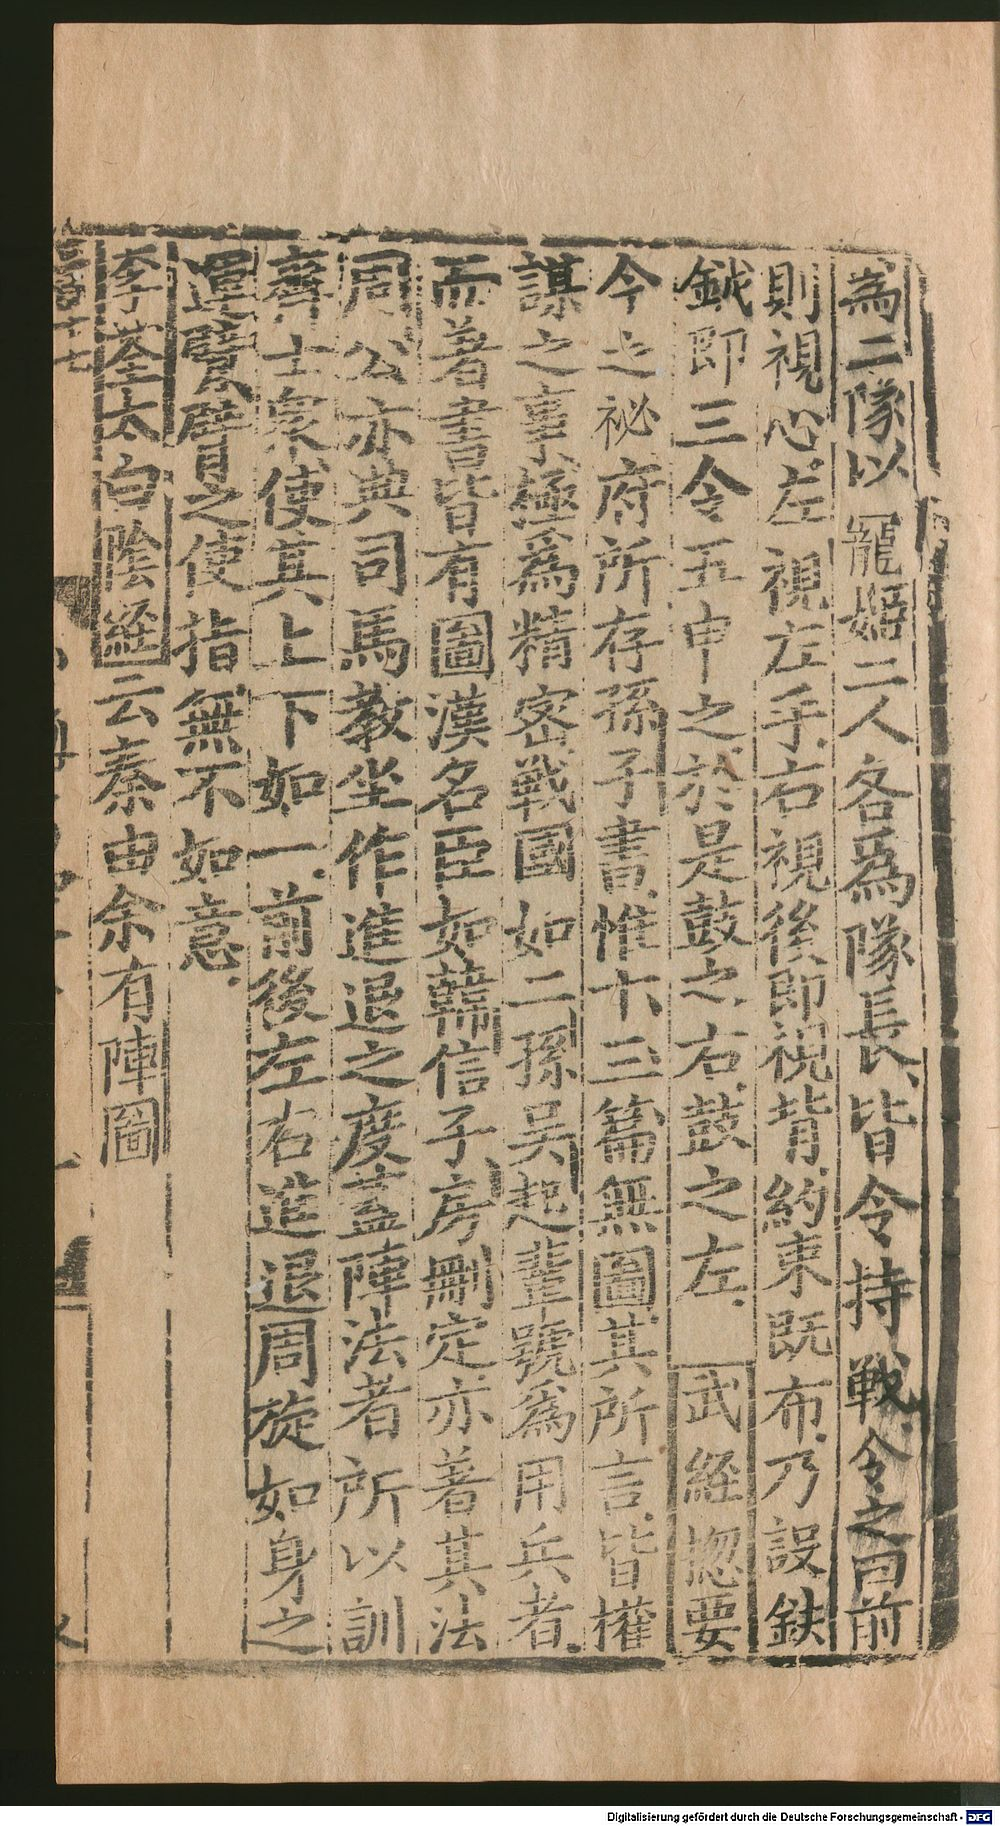 為二隊以寵姬二人各爲隊長、皆令持戟、令之曰前
則視心、左視左手、右視後、即視背、約束既布、乃設鈇
鉞、即三令五申之、於是鼓之右、鼓之左、武経惣要
今之祕府所存孫子書、惟十三篇無圖、其所言皆權
謀之事、極爲精密、戰國如二孫吳起輩號爲用兵者、
而著書皆有圖漢名臣如韓信子房刪定亦著其法
周公亦典司馬教坐作進退之度蓋陣法者所以訓
齊士衆使其上下如一、前後左右進退周旋如身之
運臂臂之使指無不如意、
李荃太白陰経云秦由余有陣圖
Digitalisierung gefördert durch die Deutsche Forschungsgemeinschaft - DFG